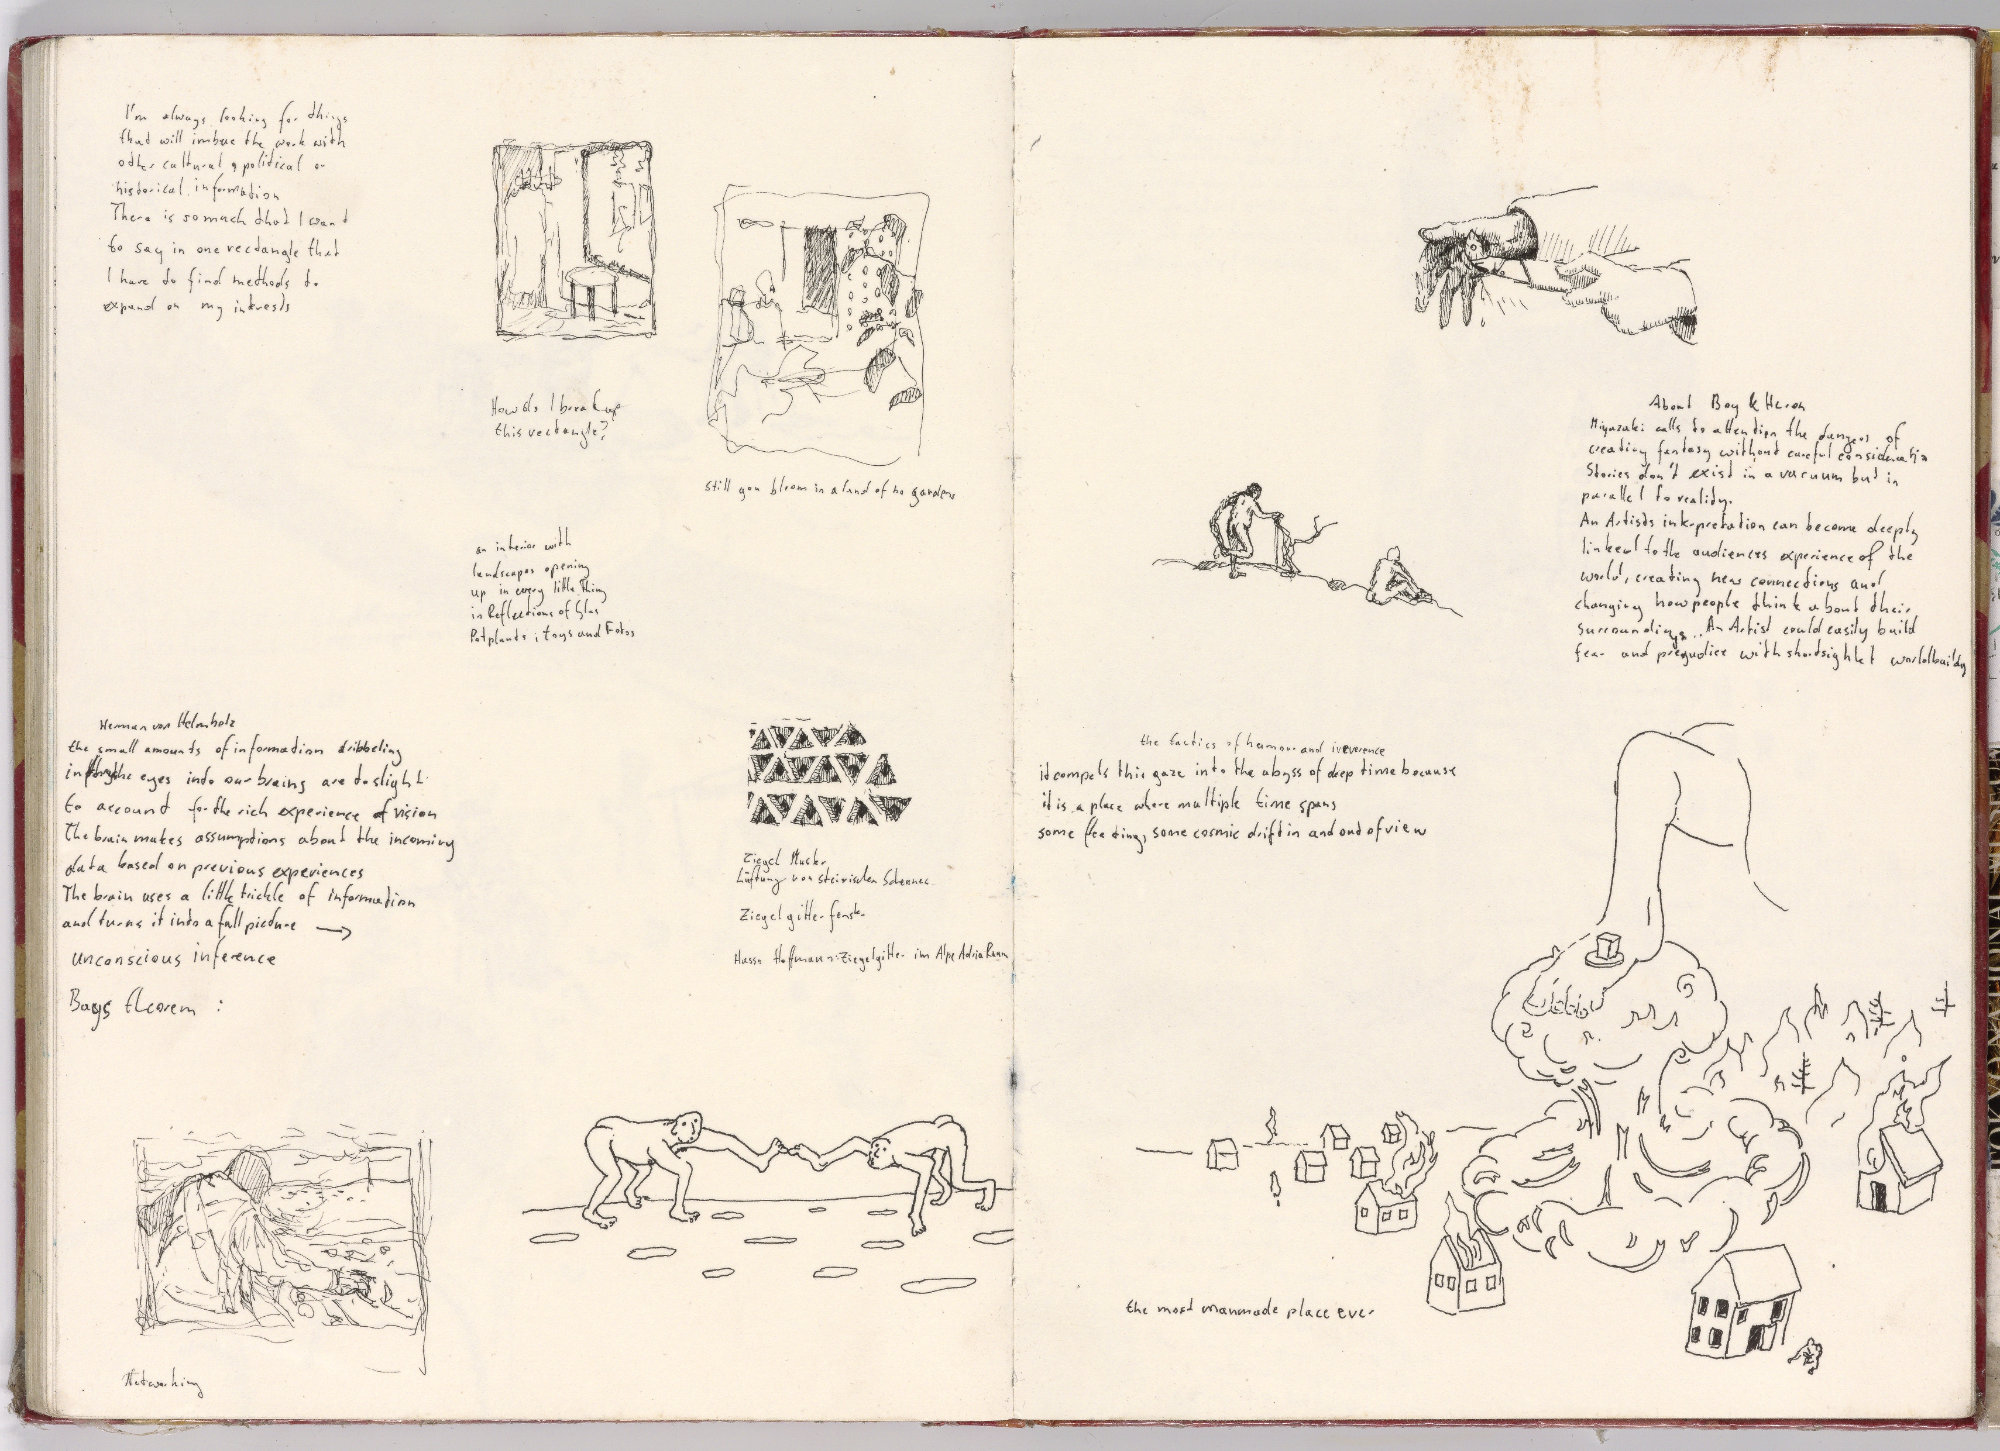 I'm always looking for things
that will imbue the work with
other cultural, political or
historical information
There is so much that I want
to say in one rectangle that
I have to find methods to
expand on my interests
How do I break up
this rectangle?
still you bloom in a land of no gardens
an interior with
landscapes opening
up in every little thing
in Reflections of Glas
Potplants, toys and Fotos
Herman von Helmholz
the small amounts of information dribbeling
in through the eyes into our brains are to slight
to account for the rich experience of vision
The brain makes assumptions about the incoming
data based on previous experiences
The brain uses a little trickle of information
and turns it into a full picture →
unconscious inference
Bays theorem :
Ziegel Muster
Lüftung von steirischen Scheunen
Ziegelgitterfenster
Hasso Hoffmann: Ziegelgitter im Alpe Adria Raum
Networking
About Boy & Heron
Miyazaki calls to attention the dangers of
creating fantasy without careful consideration
Stories don't exist in a vacuum but in
parallel to reality.
An Artists interpretation can become deeply
linked to the audiences experience of the
world, creating new connections and
changing how people think about their
surroundings.. An Artist could easily build
fear and prejudice with shortsightet worldbuilding
the tactics of humour and ireverence
it compels this gaze into the abyss of deep time because
it is a place where multiple time spans
some fleeting, some cosmic drift in and out of view
the most manmade place ever